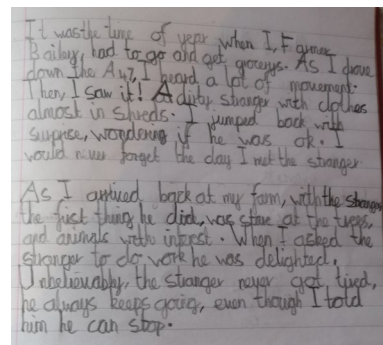 It was the time of year when I, Farmer
Bailey, had to go and get grocerys. As I drove
down the A47, I heard a lot of movement.
Then, I saw it! A dirty stranger with clothes
almost in shreds. I jumped back with
suprise, wondering if he was ok. I
would never forget the day I met the stranger.
As I arrived, back at my farm, with the stranger
the first thing he did, was stare at the trees,
and animals with intrest. When I asked the
stranger to do work he was delighted.
Unbelievably, the stranger never got tired,
he always keeps going, even though I told
him he can stop.